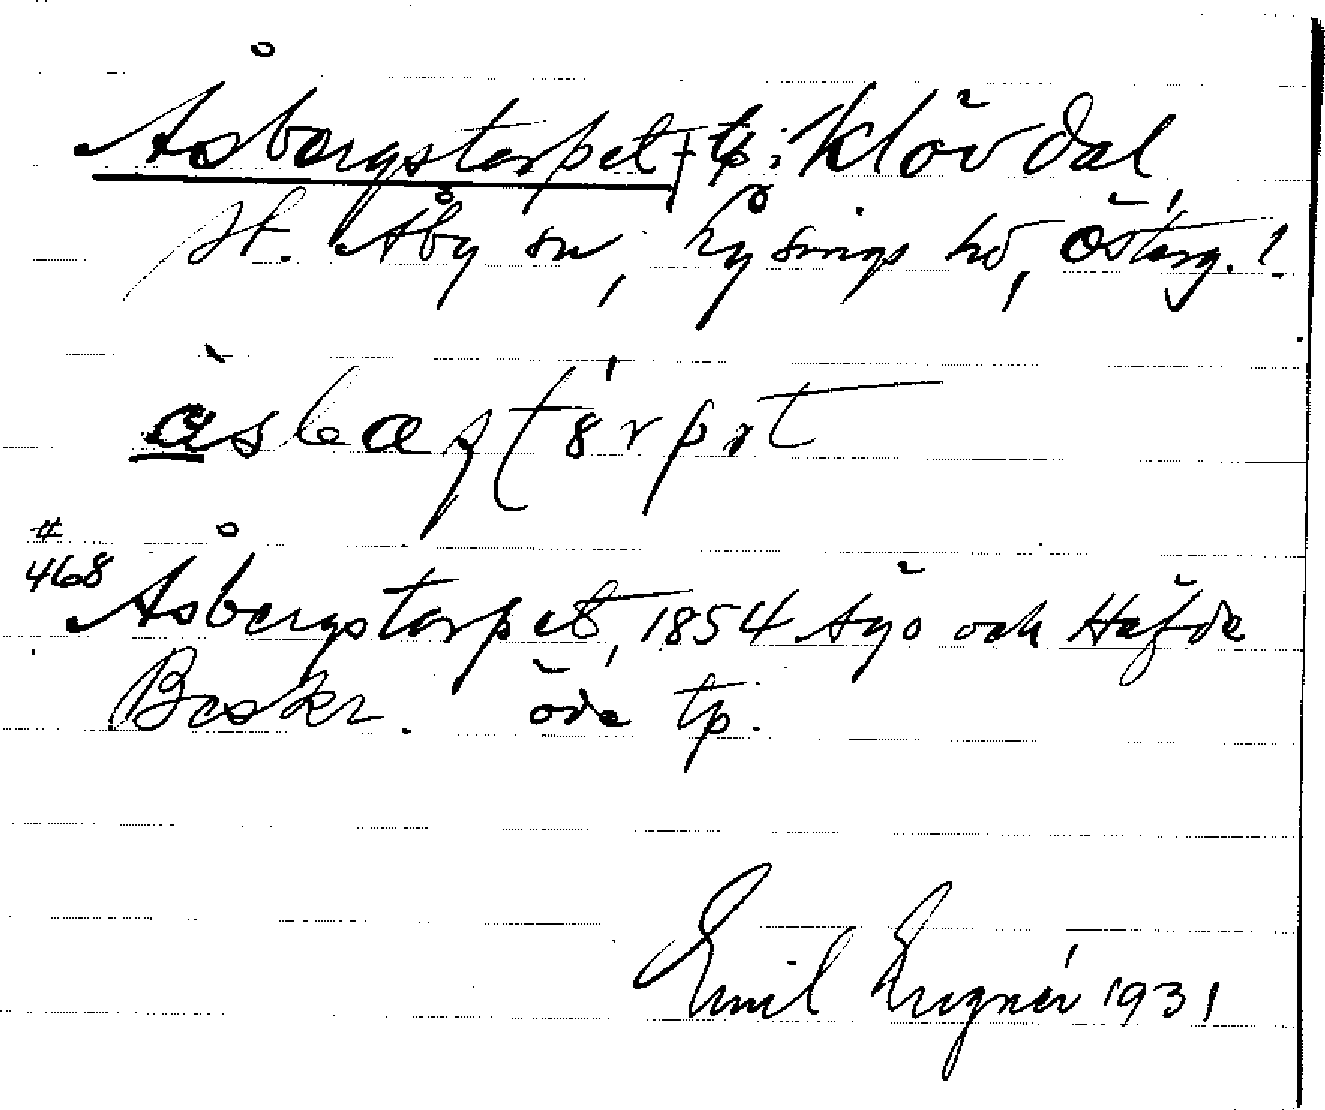 Åsbergstorpet, tp. i Klövdal
St. Åby sn, Lysings hd, Österg. l
àsbaʂtórpət
#
468 Åsbergstorpet, 1854 Ägo och Häfde
Beskr. öde tp.
Emil 1931